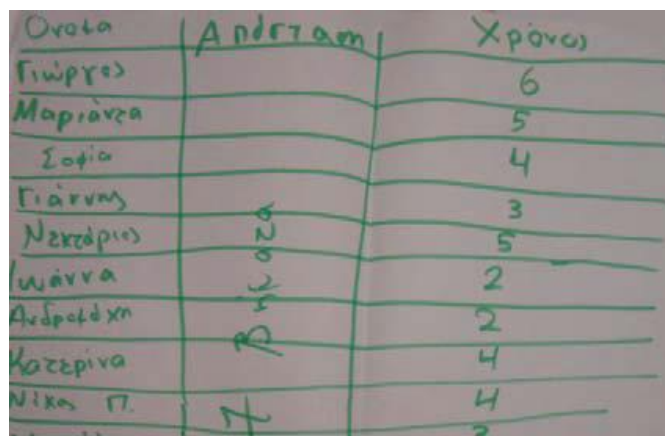 Όνομα Απόσταση Χρόνος
Γιώργος 6
Μαριάντα 5
Σοφία 4
Γιάννης 3
Νεκτάριος 5
Ιωάννα 2
Ανδρομάχη 2
Κατερίνα 4
Νίκος Π. 4